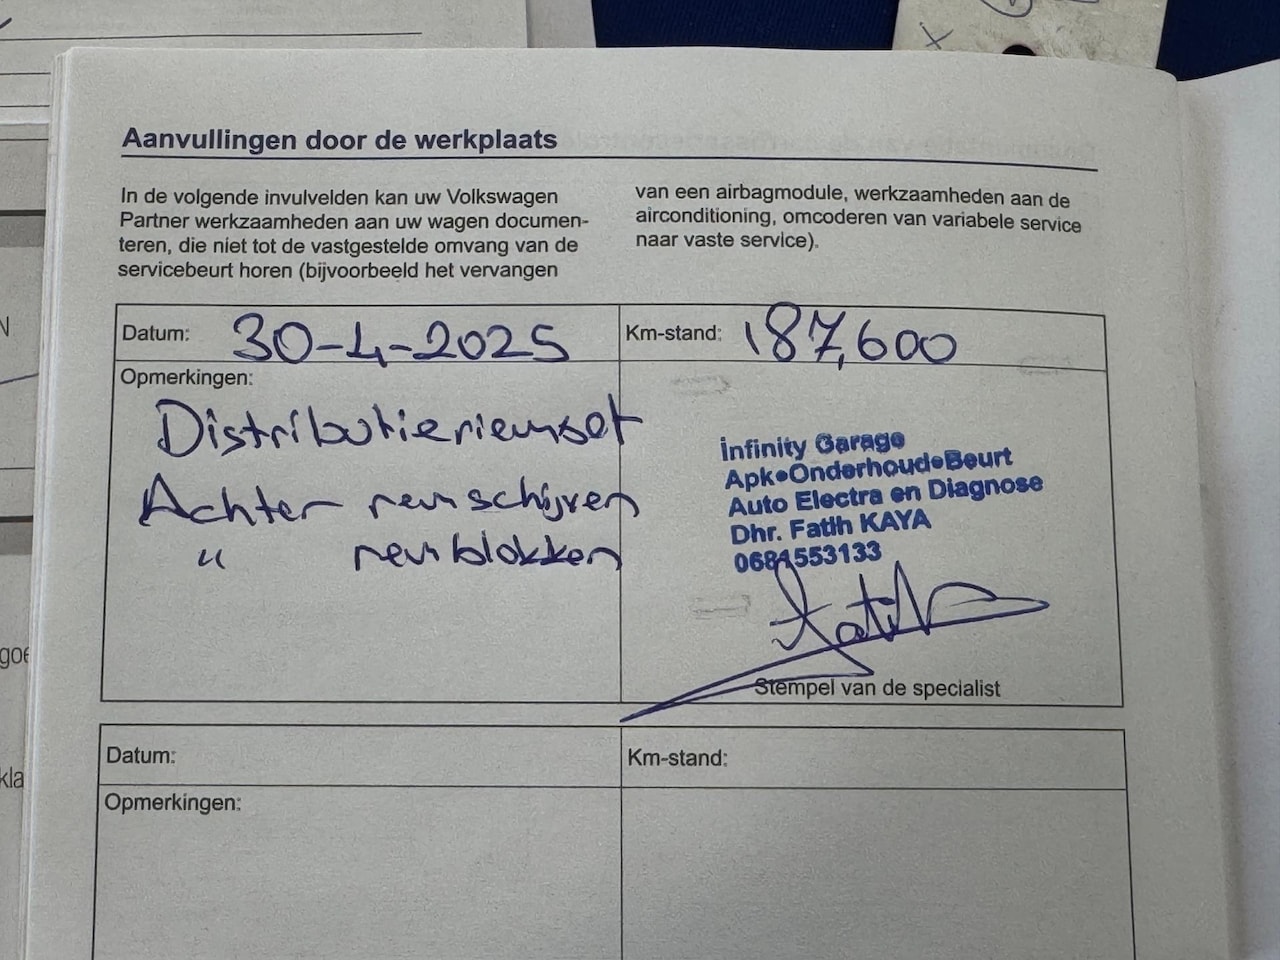 Aanvullingen door de werkplaats
In de volgende invulvelden kan uw Volkswagen
Partner werkzaamheden aan uw wagen documen-
teren, die niet tot de vastgestelde omvang van de
servicebeurt horen (bijvoorbeeld het vervangen
van een airbagmodule, werkzaamheden aan de
airconditioning, omcoderen van variabele service
naar vaste service).
Datum: 30-4-2025
Km-stand: 187,600
Opmerkingen:
Distributieriemset
Achter remschijven
" remblokken
infinity Garage
Apk•Onderhoud•Beurt
Auto Electra en Diagnose
Dhr. Fatih KAYA
0681553133
Fatih
Stempel van de specialist
Datum:
Km-stand:
Opmerkingen:
N
goe
kla